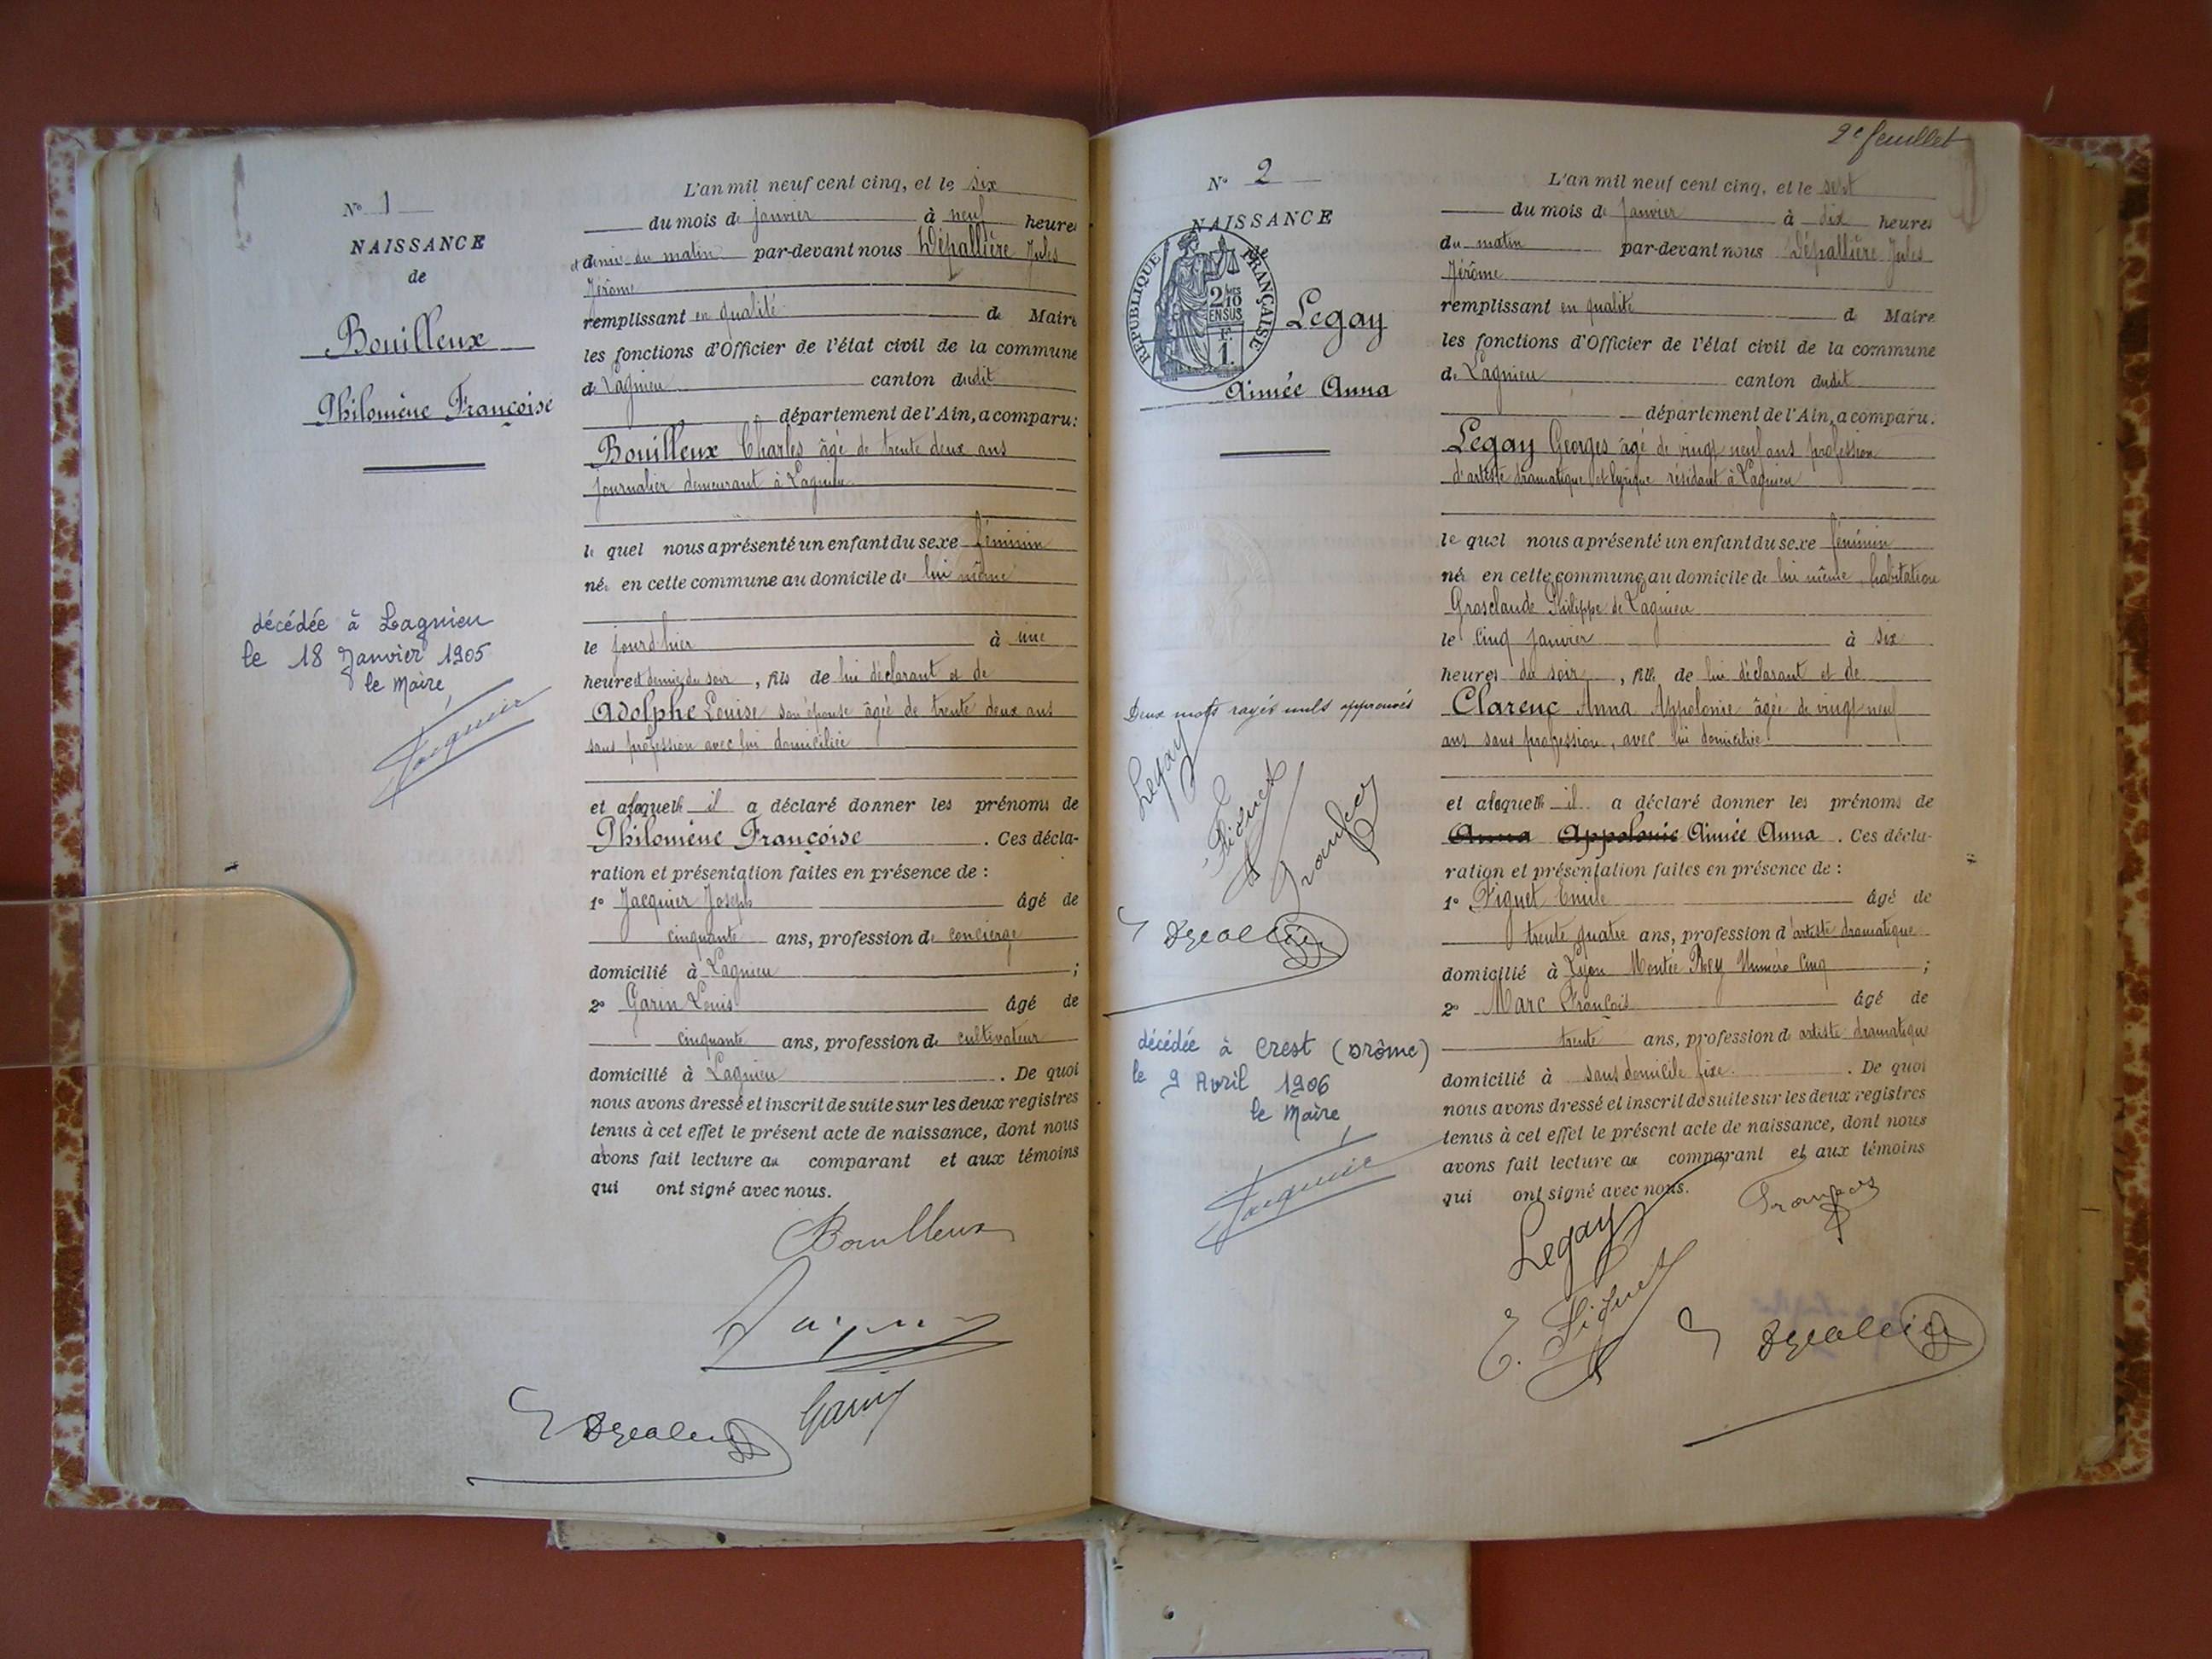 N° 1
NAISSANCE
de
Bouilleux
Philomène Françoise
décédée à Lagnieu
le 18 Janvier 1905
le Maire,
L'an mil neuf cent cinq, et le six
du mois de janvier à neuf heures
et demie du matin par-devant nous Dépallière Jules
Jérôme
remplissant en qualité de Maire
les fonctions d'Officier de l'état civil de la commune
de Lagnieu canton dudit
département de l'Ain, a comparu:
Bouilleux Charles âgé de trente deux ans
journalier demeurant à Lagnieu
le quel nous a présenté un enfant du sexe féminin
née en cette commune au domicile de lui même
le jourd'hier à une
heure et demie du soir, fils de lui déclarant et de
Adolphe Louise son épouse âgée de trente deux ans
sans profession avec lui domiciliée
et auquel il a déclaré donner les prénoms de
Philomène Françoise. Ces décla-
ration et présentation faites en présence de :
1° Jacquier Joseph âgé de
cinquante ans, profession de concierge
domicilié à Lagnieu ;
2° Garin Louis âgé de
cinquante ans, profession de cultivateur
domicilié à Lagnieu. De quoi
nous avons dressé et inscrit de suite sur les deux registres
tenus à cet effet le présent acte de naissance, dont nous
avons fait lecture au comparant et aux témoins
qui ont signé avec nous.
Bouilleux
Garin
2e feuillet
N° 2
NAISSANCE
de
RÉPUBLIQUE FRANÇAISE
2 MES
10
EN SUS
1 F.
Legay
Aimée Anna
Deux mots rayés nuls approuvés
Legay
Piguet
François
décédée à Crest (Drôme)
le 9 Avril 1906
le Maire,
L'an mil neuf cent cinq, et le sept
du mois de Janvier à dix heures
du matin par-devant nous Dépallière Jules
Jérôme
remplissant en qualité de Maire
les fonctions d'Officier de l'état civil de la commune
de Lagnieu canton dudit
département de l'Ain, a comparu.
Legay Georges âgé de vingt neuf ans profession
d'artiste dramatique et lyrique résidant à Lagnieu
le quel nous a présenté un enfant du sexe féminin
née en cette commune au domicile de lui même, habitation
Grosclaude Philippe de Lagnieu
le cinq Janvier à six
heures du soir, fille de lui déclarant et de
Clarenc Anna Appolonie âgée de vingt neuf
ans sans profession, avec lui domiciliée
et auquel il a déclaré donner les prénoms de
Anna Appolonie Aimée Anna. Ces décla-
ration et présentation faites en présence de :
1° Piguet Emile âgé de
trente quatre ans, profession d'artiste dramatique
domicilié à Lyon Montée Rey Numéro Cinq ;
2° Marc François âgé de
trente ans, profession de artiste dramatique
domicilié à sans domicile fixe. De quoi
nous avons dressé et inscrit de suite sur les deux registres
tenus à cet effet le présent acte de naissance, dont nous
avons fait lecture au comparant et aux témoins
qui ont signé avec nous.
Legay
François
E. Piguet